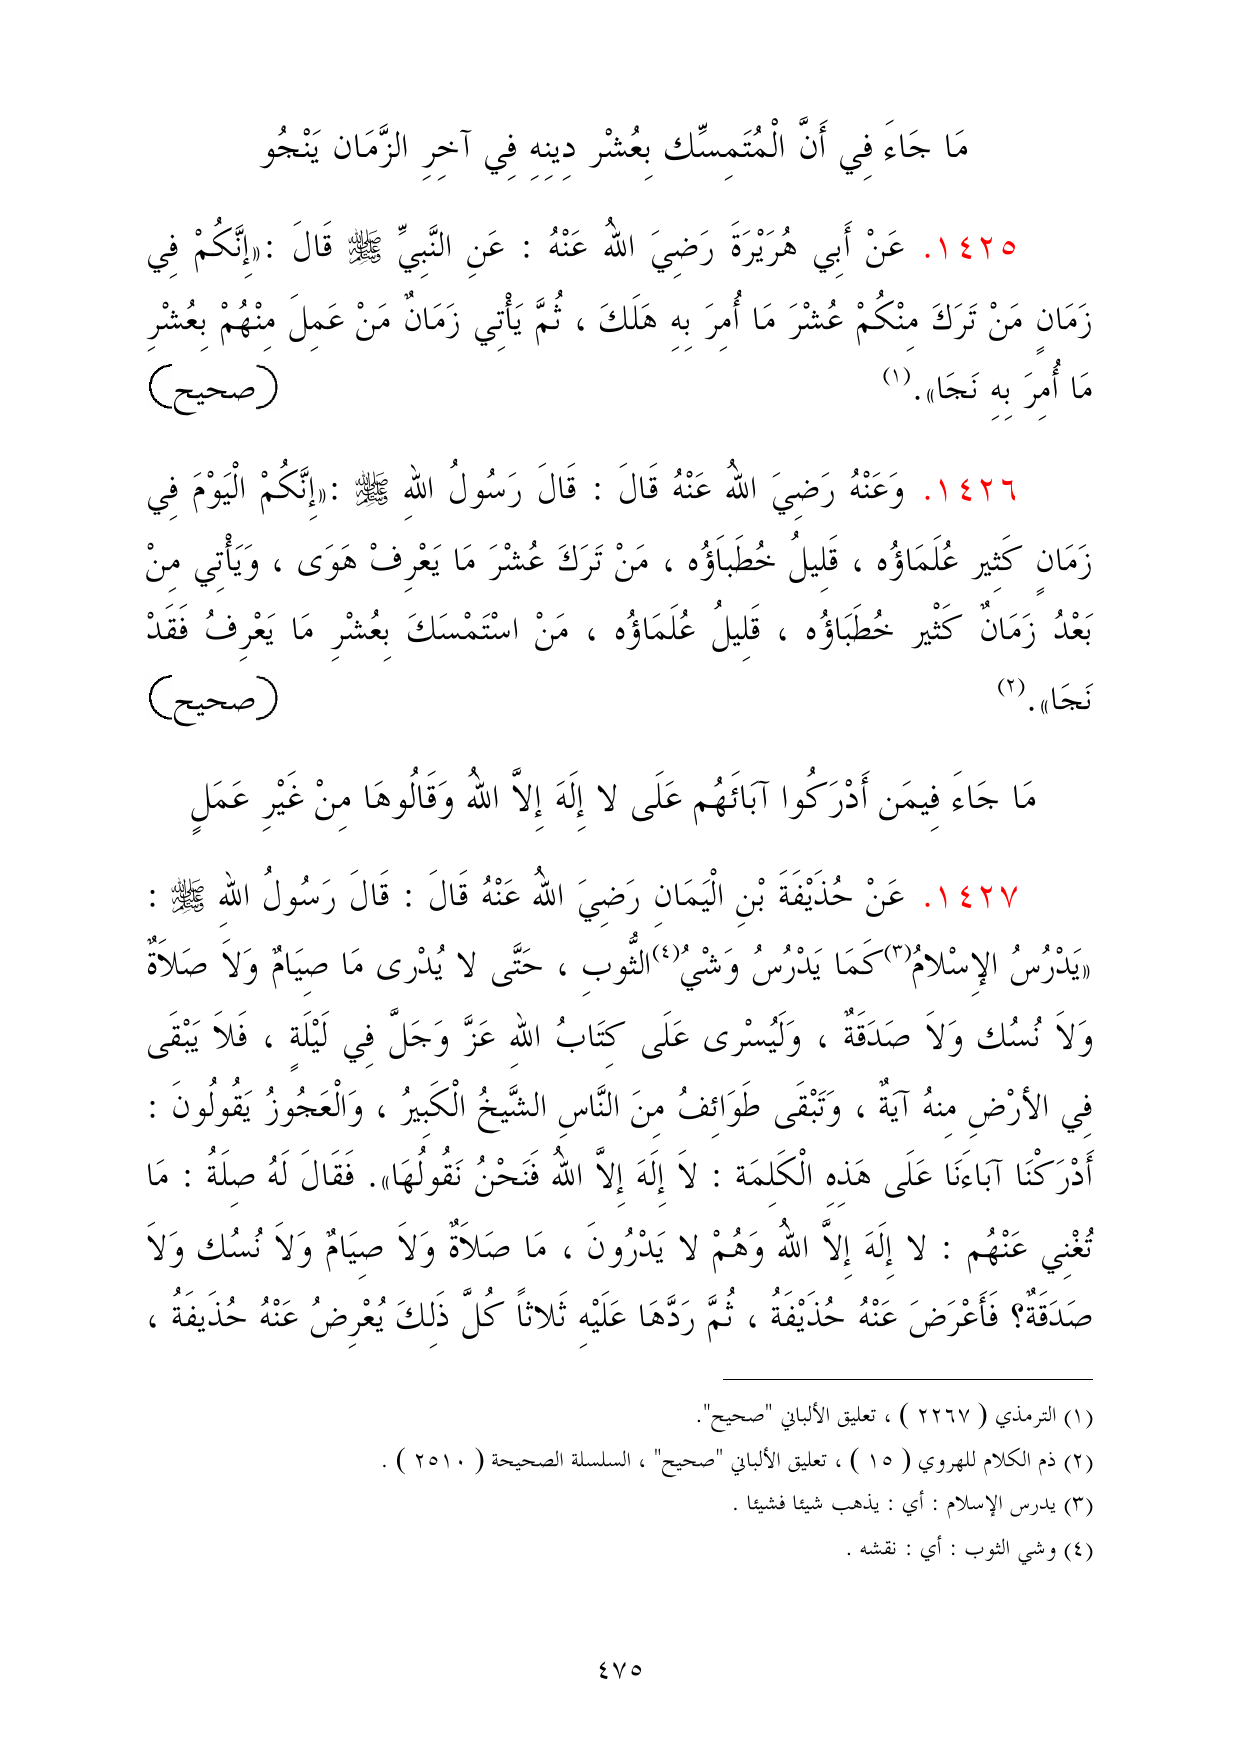 مَا جَاءَ فِي أَنَّ الْمُتَمِسِّك بِعُشْر دِينِهِ فِي آخِرِ الزَّمَان يَنْجُو
١٤٢٥. عَنْ أَبِي هُرَيْرَةَ رَضِيَ اللهُ عَنْهُ : عَنِ النَّبِيِّ ﷺ قَالَ :«إِنَّكُمْ فِي
زَمَانٍ مَنْ تَرَكَ مِنْكُمْ عُشْرَ مَا أُمِرَ بِهِ هَلَكَ ، ثُمَّ يَأْتِي زَمَانٌ مَنْ عَمِلَ مِنْهُمْ بِعُشْرِ
مَا أُمِرَ بِهِ نَجَا».(١) (صحيح)
١٤٢٦. وَعَنْهُ رَضِيَ اللهُ عَنْهُ قَالَ : قَالَ رَسُولُ اللهِ ﷺ :«إِنَّكُمْ الْيَوْمَ فِي
زَمَانٍ كَثِير عُلَمَاؤُه ، قَلِيلُ خُطَبَاؤُه ، مَنْ تَرَكَ عُشْرَ مَا يَعْرِفْ هَوَى ، وَيَأْتِي مِنْ
بَعْدُ زَمَانٌ كَثْير خُطَبَاؤُه ، قَلِيلُ عُلَمَاؤُه ، مَنْ اسْتَمْسَكَ بِعُشْرِ مَا يَعْرِفُ فَقَدْ
نَجَا».(٢) (صحيح)
مَا جَاءَ فِيمَن أَدْرَكُوا آبَائَهُم عَلَى لا إِلَهَ إِلاَّ اللهُ وَقَالُوهَا مِنْ غَيْرِ عَمَلٍ
١٤٢٧. عَنْ حُذَيْفَةَ بْنِ الْيَمَانِ رَضِيَ اللهُ عَنْهُ قَالَ : قَالَ رَسُولُ اللهِ ﷺ :
«يَدْرُسُ الإِسْلامُ(٣)كَمَا يَدْرُسُ وَشْيُ(٤)الثَّوبِ ، حَتَّى لا يُدْرى مَا صِيَامٌ وَلاَ صَلاَةٌ
وَلاَ نُسُك وَلاَ صَدَقَةٌ ، وَلَيُسْرى عَلَى كِتَابُ اللهِ عَزَّ وَجَلَّ فِي لَيْلَةٍ ، فَلاَ يَبْقَى
فِي الأرْضِ مِنهُ آيَةٌ ، وَتَبْقَى طَوَائِفُ مِنَ النَّاسِ الشَّيخُ الْكَبِيرُ ، وَالْعَجُوزُ يَقُولُونَ :
أَدْرَكْنَا آبَاءَنَا عَلَى هَذِهِ الْكَلِمَة : لاَ إِلَهَ إِلاَّ اللهُ فَنَحْنُ نَقُولُهَا». فَقَالَ لَهُ صِلَةُ : مَا
تُغْنِي عَنْهُم : لا إِلَهَ إِلاَّ اللهُ وَهُمْ لا يَدْرُونَ ، مَا صَلاَةٌ وَلاَ صِيَامٌ وَلاَ نُسُك وَلاَ
صَدَقَةٌ؟ فَأَعْرَضَ عَنْهُ حُذَيْفَةُ ، ثُمَّ رَدَّهَا عَلَيْهِ ثَلاثاً كُلَّ ذَلِكَ يُعْرِضُ عَنْهُ حُذَيفَةُ ،
(١) الترمذي ( ٢٢٦٧ ) ، تعليق الألباني "صحيح".
(٢) ذم الكلام للهروي ( ١٥ ) ، تعليق الألباني "صحيح" ، السلسلة الصحيحة ( ٢٥١٠ ) .
(٣) يدرس الإسلام : أي : يذهب شيئا فشيئا .
(٤) وشي الثوب : أي : نقشه .
٤٧٥